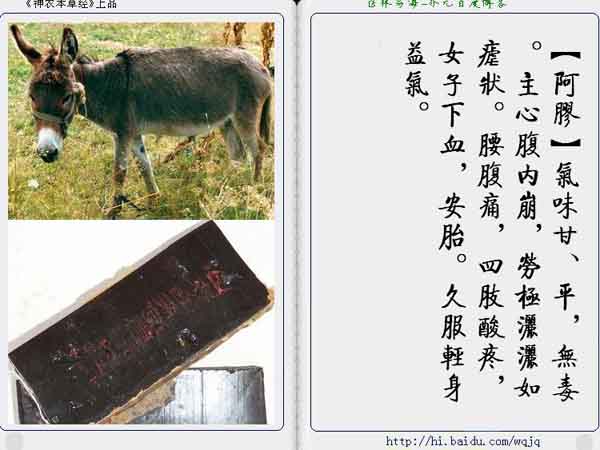 《神农本草经》上品
百度博客
【阿膠】氣味甘、平，無毒
。主心腹内崩，勞極灑灑如
瘧狀。腰腹痛，四肢酸疼，
女子下血，安胎。久服輕身
益氣。
http://hi.baidu.com/wqjq